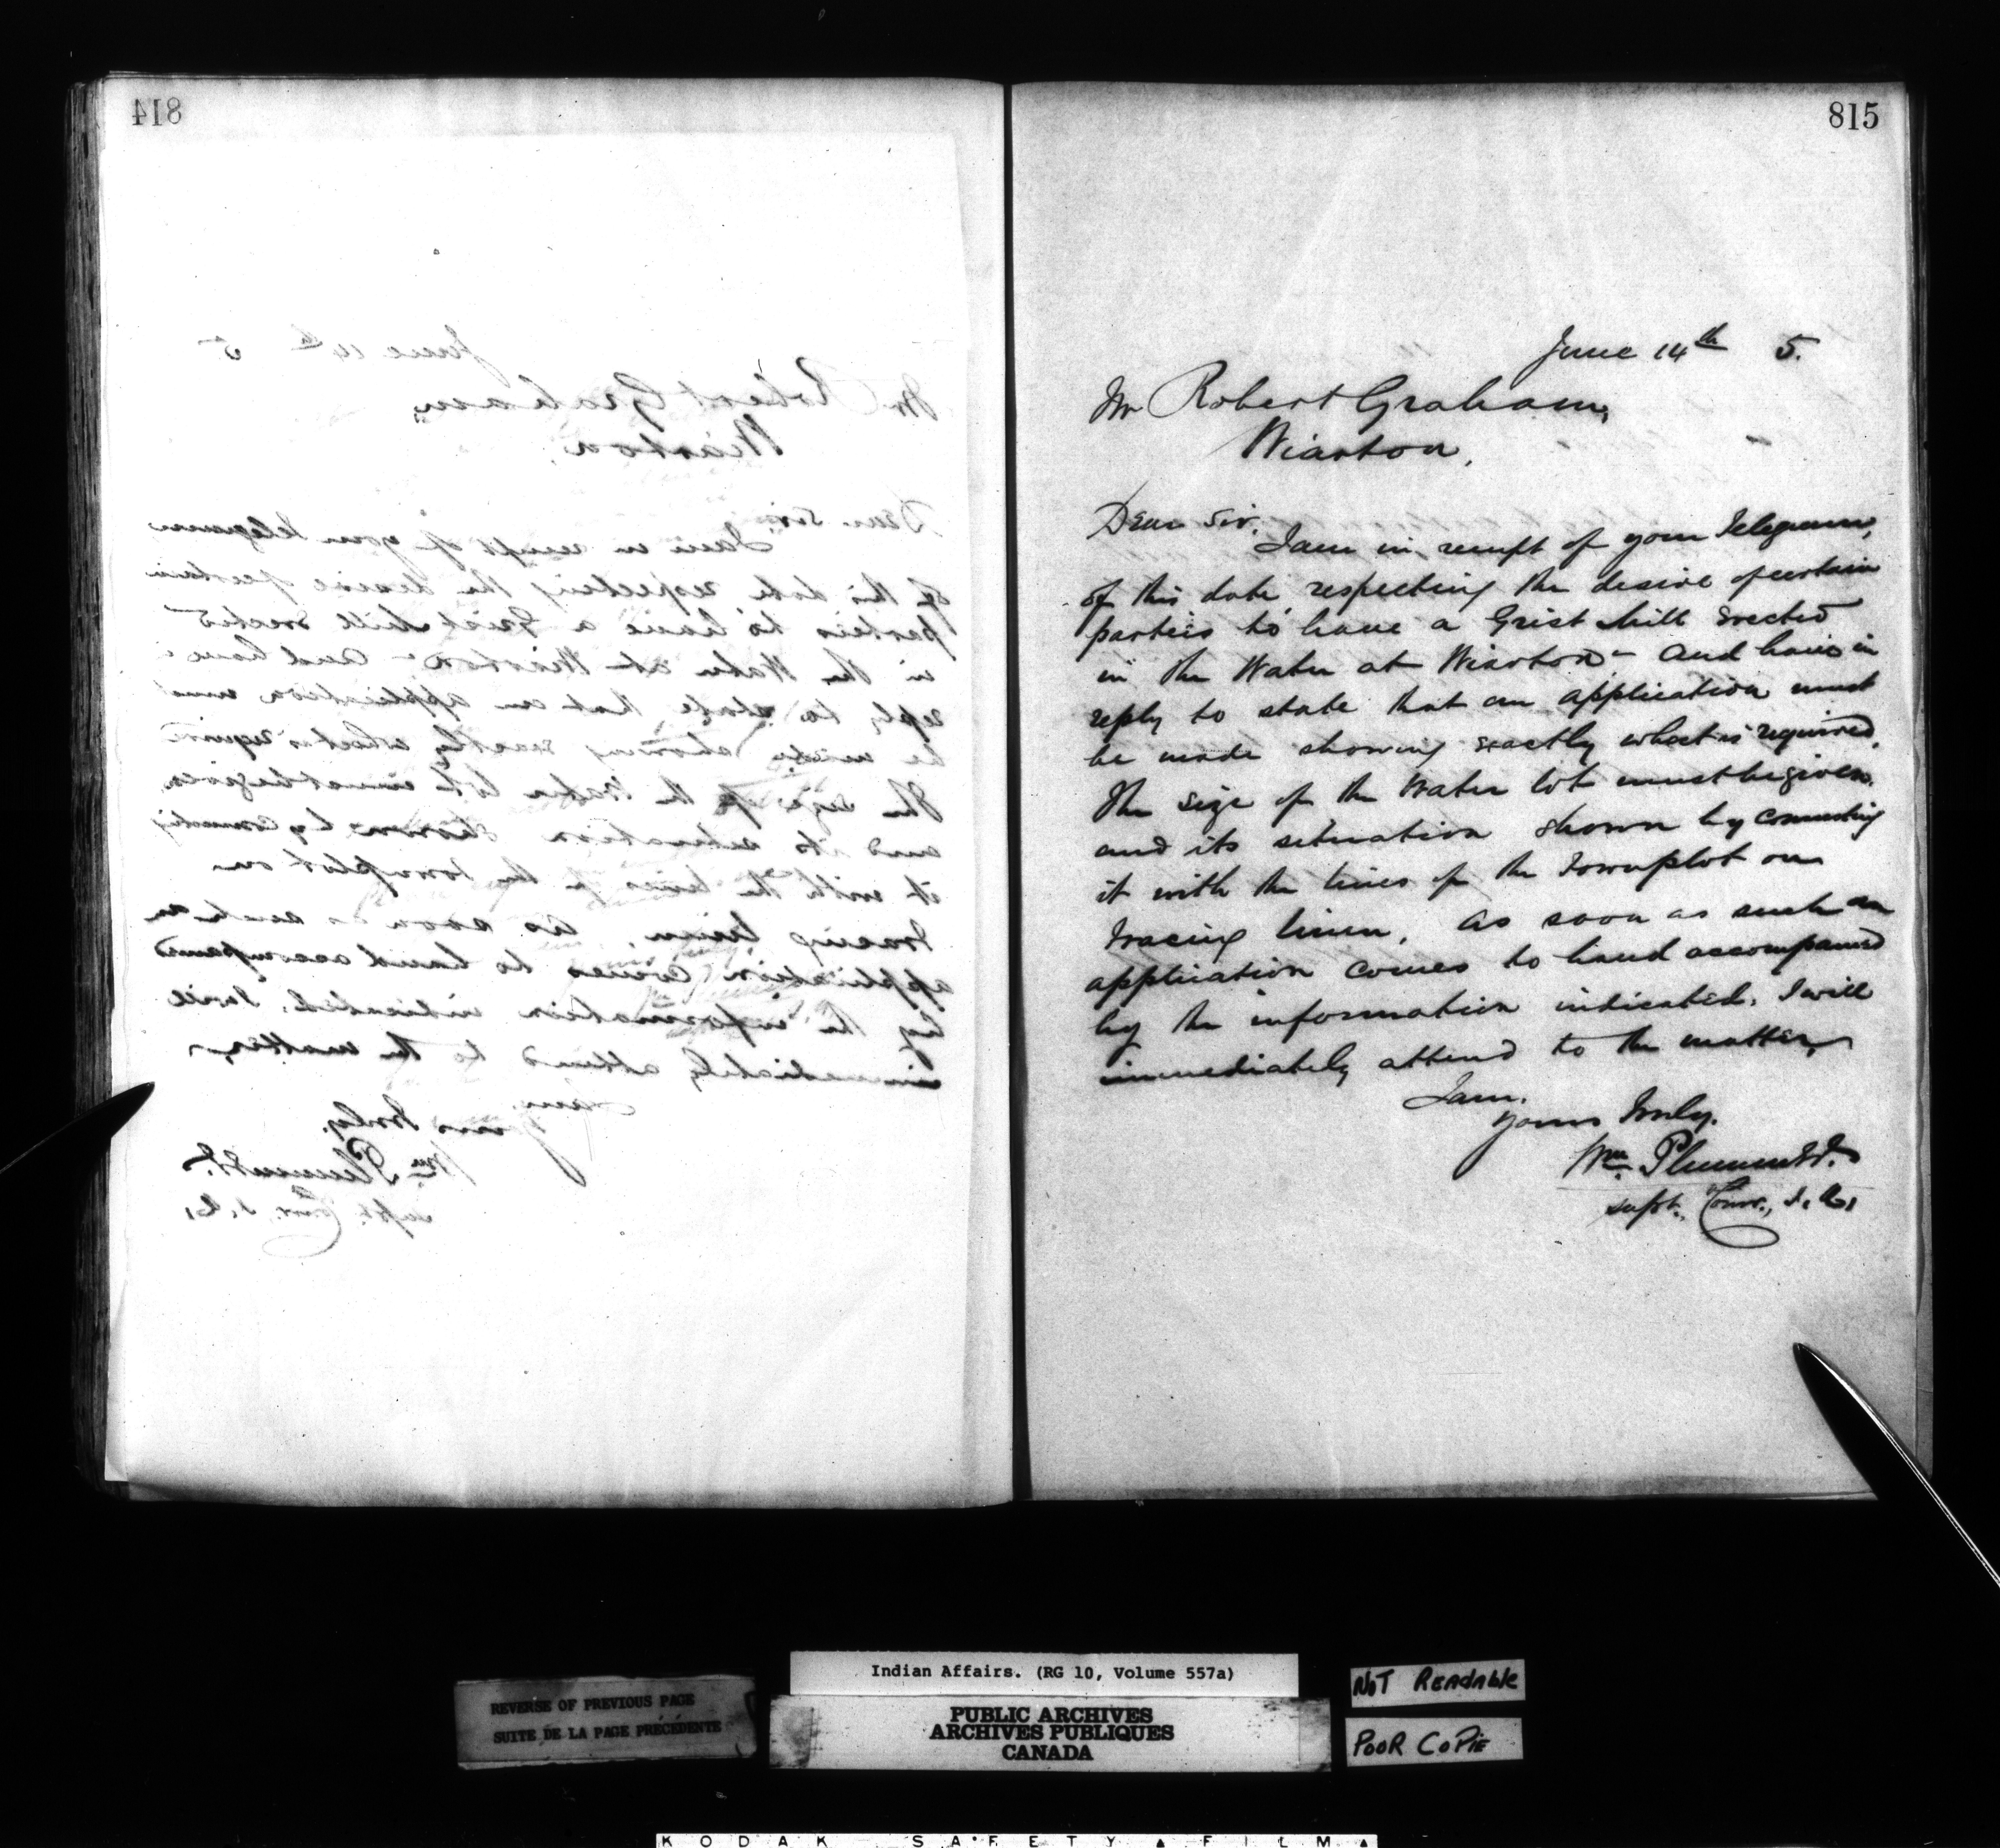 814
815
June 14th 5.
Mr Robert Graham,
Wiarton,
Dear Sir,
I am in receipt of your Telegram,
of this date respecting the desire of certain
parties to have a Grist Mill Erected
in the Water at Wiarton - and have in
reply to state that an application must
be made showing exactly what is required,
The size of the Water lot must be given.
and its situation shown by connecting
it with the lines of the Townplot on
tracing linen, as soon as such an
application comes to hand accompanied
by the information indicated, I will
immediately attend to the matter,
I am,
Yours truly,
Wm Plummer
Supt. Comr., I. A.
REVERSE OF PREVIOUS PAGE
SUITE DE LA PAGE PRÉCÉDENTE
Indian Affairs. (RG 10, Volume 557a)
PUBLIC ARCHIVES
ARCHIVES PUBLIQUES
CANADA
NOT READABLE
POOR COPIE
KODAK SAFETY FILM